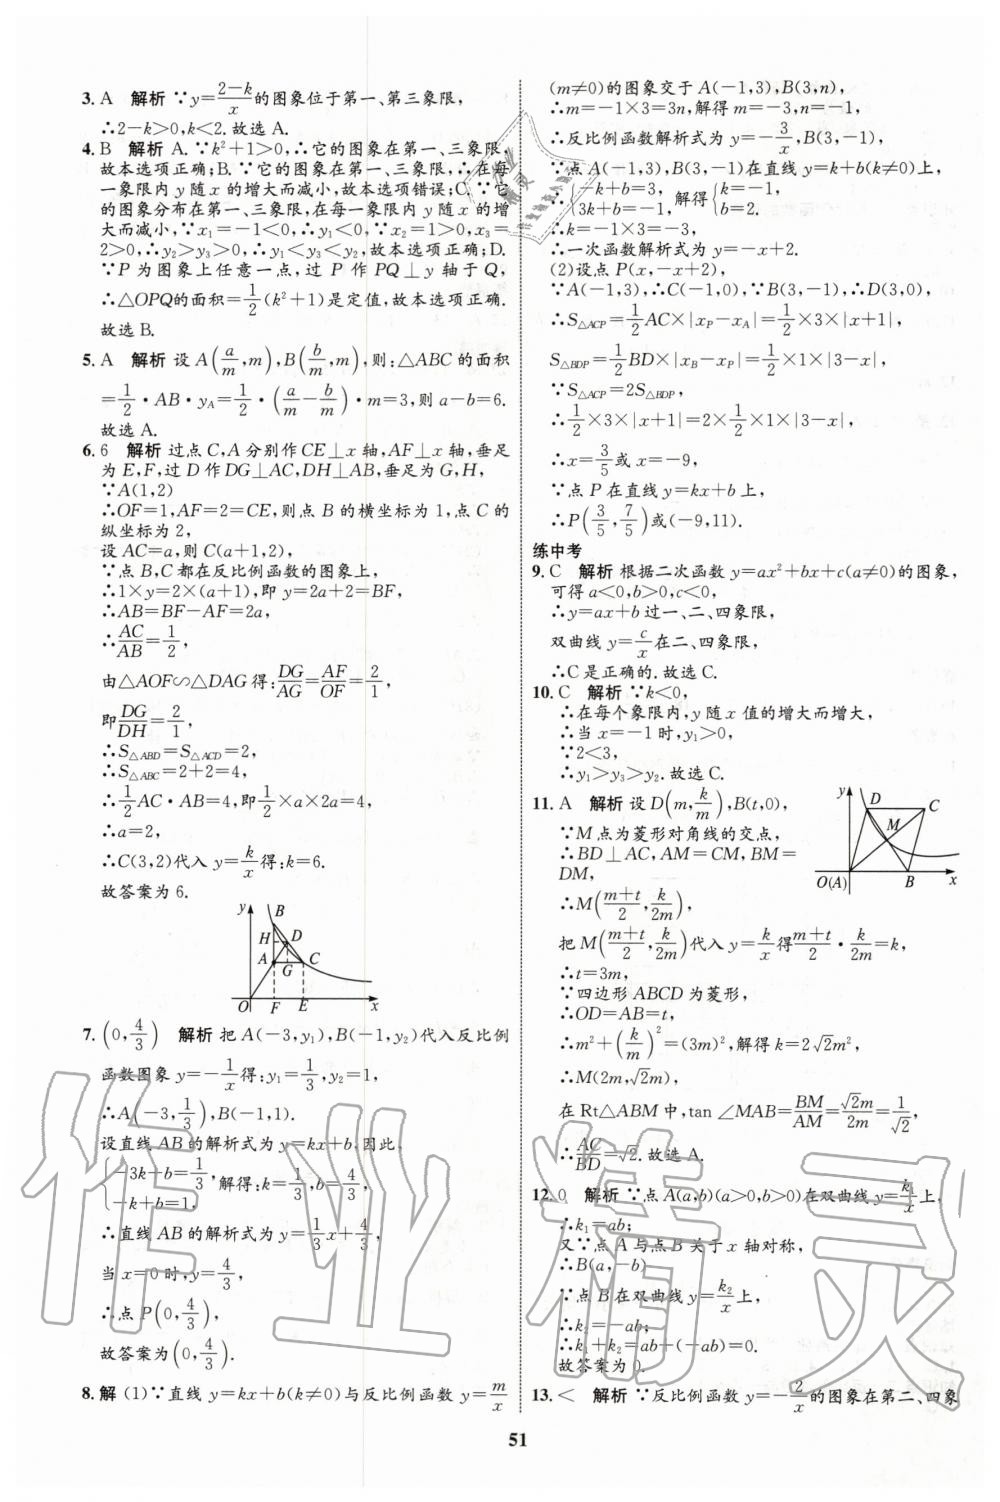 3. A 解析 ∵y=(2-k)/x的图象位于第一、第三象限,
∴2-k>0,k<2.故选 A.
4. B 解析 A. ∵k²+1>0,∴它的图象在第一、三象限,
故本选项正确;B. ∵它的图象在第一、三象限,∴在每
一象限内 y 随 x 的增大而减小,故本选项错误;C. ∵它
的图象分布在第一、三象限,在每一象限内 y 随 x 的增
大而减小,∵x₁=-1<0,∴y₁<0,∵x₂=1>0,x₃=
2>0,∴y₂>y₃>0,∴y₁<y₃<y₂,故本选项正确;D.
∵P 为图象上任意一点,过 P 作 PQ⊥y 轴于 Q,
∴△OPQ的面积=1/2(k²+1)是定值,故本选项正确.
故选 B.
5. A 解析 设 A(a/m,m),B(b/m,m),则:△ABC 的面积
=1/2·AB·y_A=1/2·(a/m-b/m)·m=3,则 a-b=6.
故选 A.
6. 6 解析 过点 C,A 分别作 CE⊥x 轴,AF⊥x 轴,垂足
为 E,F,过 D 作 DG⊥AC,DH⊥AB,垂足为 G,H,
∵A(1,2)
∴OF=1,AF=2=CE,则点 B 的横坐标为 1,点 C 的
纵坐标为 2,
设 AC=a,则 C(a+1,2),
∵点 B,C 都在反比例函数的图象上,
∴1×y=2×(a+1),即 y=2a+2=BF,
∴AB=BF-AF=2a,
∴AC/AB=1/2,
由△AOF∽△DAG 得:DG/AG=AF/OF=2/1,
即DG/DH=2/1,
∴S△ABD=S△ACD=2,
∴S△ABC=2+2=4,
∴1/2AC·AB=4,即1/2×a×2a=4,
∴a=2,
∴C(3,2)代入 y=k/x得:k=6.
故答案为 6.
y B H D A G C O F E x
7. (0,4/3) 解析 把 A(-3,y₁),B(-1,y₂)代入反比例
函数图象 y=-1/x得:y₁=1/3,y₂=1,
∴A(-3,1/3),B(-1,1).
设直线 AB 的解析式为 y=kx+b,因此,
{-3k+b=1/3, -k+b=1, 解得:k=1/3,b=4/3,
∴直线 AB 的解析式为 y=1/3x+4/3,
当 x=0 时,y=4/3,
∴点 P(0,4/3),
故答案为(0,4/3).
8. 解 (1)∵直线 y=kx+b(k≠0)与反比例函数 y=m/x
(m≠0)的图象交于 A(-1,3),B(3,n),
∴m=-1×3=3n,解得 m=-3,n=-1,
∴反比例函数解析式为 y=-3/x,B(3,-1),
∵点 A(-1,3),B(3,-1)在直线 y=k+b(k≠0)上,
∴{-k+b=3, 3k+b=-1, 解得{k=-1, b=2.
∴一次函数解析式为 y=-x+2.
(2)设点 P(x,-x+2),
∵A(-1,3),∴C(-1,0),∵B(3,-1),∴D(3,0),
∴S△ACP=1/2AC×|x_P-x_A|=1/2×3×|x+1|,
S△BDP=1/2BD×|x_B-x_P|=1/2×1×|3-x|,
∵S△ACP=2S△BDP,
∴1/2×3×|x+1|=2×1/2×1×|3-x|,
∴x=3/5或 x=-9,
∵点 P 在直线 y=kx+b 上,
∴P(3/5,7/5)或(-9,11).
练中考
9. C 解析 根据二次函数 y=ax²+bx+c(a≠0)的图象,
可得 a<0,b>0,c<0,
∴y=ax+b 过一、二、四象限,
双曲线 y=c/x在二、四象限,
∴C 是正确的.故选 C.
10. C 解析 ∵k<0,
∴在每个象限内,y 随 x 值的增大而增大,
∴当 x=-1 时,y₁>0,
∵2<3,
∴y₁>y₃>y₂.故选 C.
11. A 解析 设 D(m,k/m),B(t,0),
∵M 点为菱形对角线的交点,
∴BD⊥AC,AM=CM,BM=
DM,
∴M((m+t)/2,k/2m),
y D C M O(A) B x
把 M((m+t)/2,k/2m)代入 y=k/x得(m+t)/2·k/2m=k,
∴t=3m,
∵四边形 ABCD 为菱形,
∴OD=AB=t,
∴m²+(k/m)²=(3m)²,解得 k=2√2m²,
∴M(2m,√2m),
在 Rt△ABM 中,tan ∠MAB=BM/AM=√2m/2m=1/√2,
∴AC/BD=√2.故选 A.
12. 0 解析 ∵点 A(a,b)(a>0,b>0)在双曲线 y=k₁/x上,
∴k₁=ab;
又∵点 A 与点 B 关于 x 轴对称,
∴B(a,-b)
∵点 B 在双曲线 y=k₂/x上,
∴k₂=-ab;
∴k₁+k₂=ab+(-ab)=0.
故答案为 0.
13. < 解析 ∵反比例函数 y=-2/x的图象在第二、四象
51
作业精灵